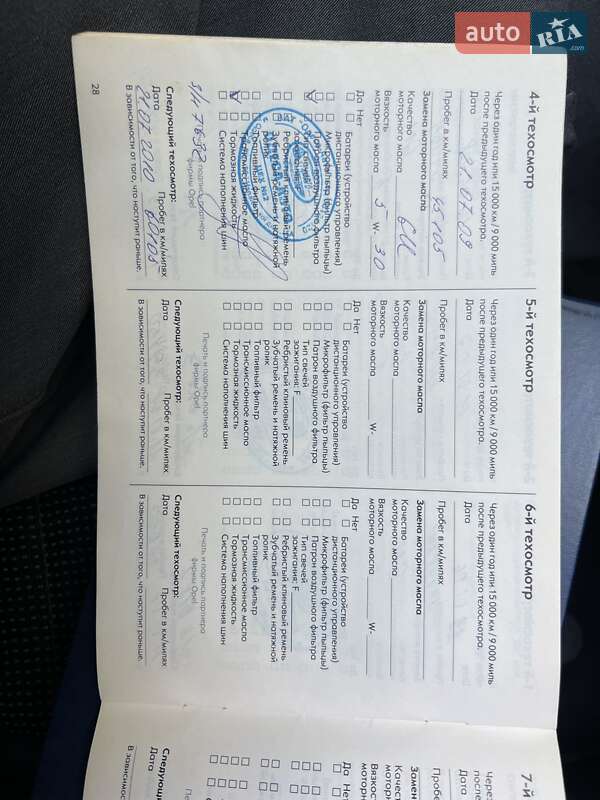 auto RIA .com
4-й техосмотр
Через один год или 15 000 км / 9 000 миль
после предыдущего техосмотра.
Дата 21.07.09
Пробег в км/милях 45 105
Замена моторного масла
Качество
моторного масла GM
Вязкость
моторного масла 5 W- 30
Да Нет
Батареи (устройство
дистанционного управления)
Микрофильтр (фильтр пыльцы)
Патрон воздушного фильтра
Ребристый клиновый ремень
Зубчатый ремень и натяжной
Топливный фильтр
Трансмиссионное масло
Тормозная жидкость
Система наполнения шин
Следующий техосмотр:
Дата Пробег в км/милях
21.07.2010 60105
В зависимости от того, что наступит раньше.
28
5-й техосмотр
Через один год или 15 000 км / 9 000 миль
после предыдущего техосмотра.
Дата
Пробег в км/милях
Замена моторного масла
Качество
моторного масла
Вязкость
моторного масла W-
Да Нет
Батареи (устройство
дистанционного управления)
Микрофильтр (фильтр пыльцы)
Патрон воздушного фильтра
Тип свечей
зажигания: F
Ребристый клиновый ремень
Зубчатый ремень и натяжной
ролик
Топливный фильтр
Трансмиссионное масло
Тормозная жидкость
Система наполнения шин
Печать и подпись партнера
фирмы Opel
Следующий техосмотр:
Дата Пробег в км/милях
В зависимости от того, что наступит раньше.
6-й техосмотр
Через один год или 15 000 км / 9 000 миль
после предыдущего техосмотра.
Дата
Пробег в км/милях
Замена моторного масла
Качество
моторного масла
Вязкость
моторного масла W-
Да Нет
Батареи (устройство
дистанционного управления)
Микрофильтр (фильтр пыльцы)
Патрон воздушного фильтра
Тип свечей
зажигания: F
Ребристый клиновый ремень
Зубчатый ремень и натяжной
ролик
Топливный фильтр
Трансмиссионное масло
Тормозная жидкость
Система наполнения шин
Печать и подпись партнера
фирмы Opel
Следующий техосмотр:
Дата Пробег в км/милях
В зависимости от того, что наступит раньше.
7-й
Через
после
Дата
Замен
Качест
моторн
Вязкос
мотор
Да Нет
Следующи
Дата
В зависимос